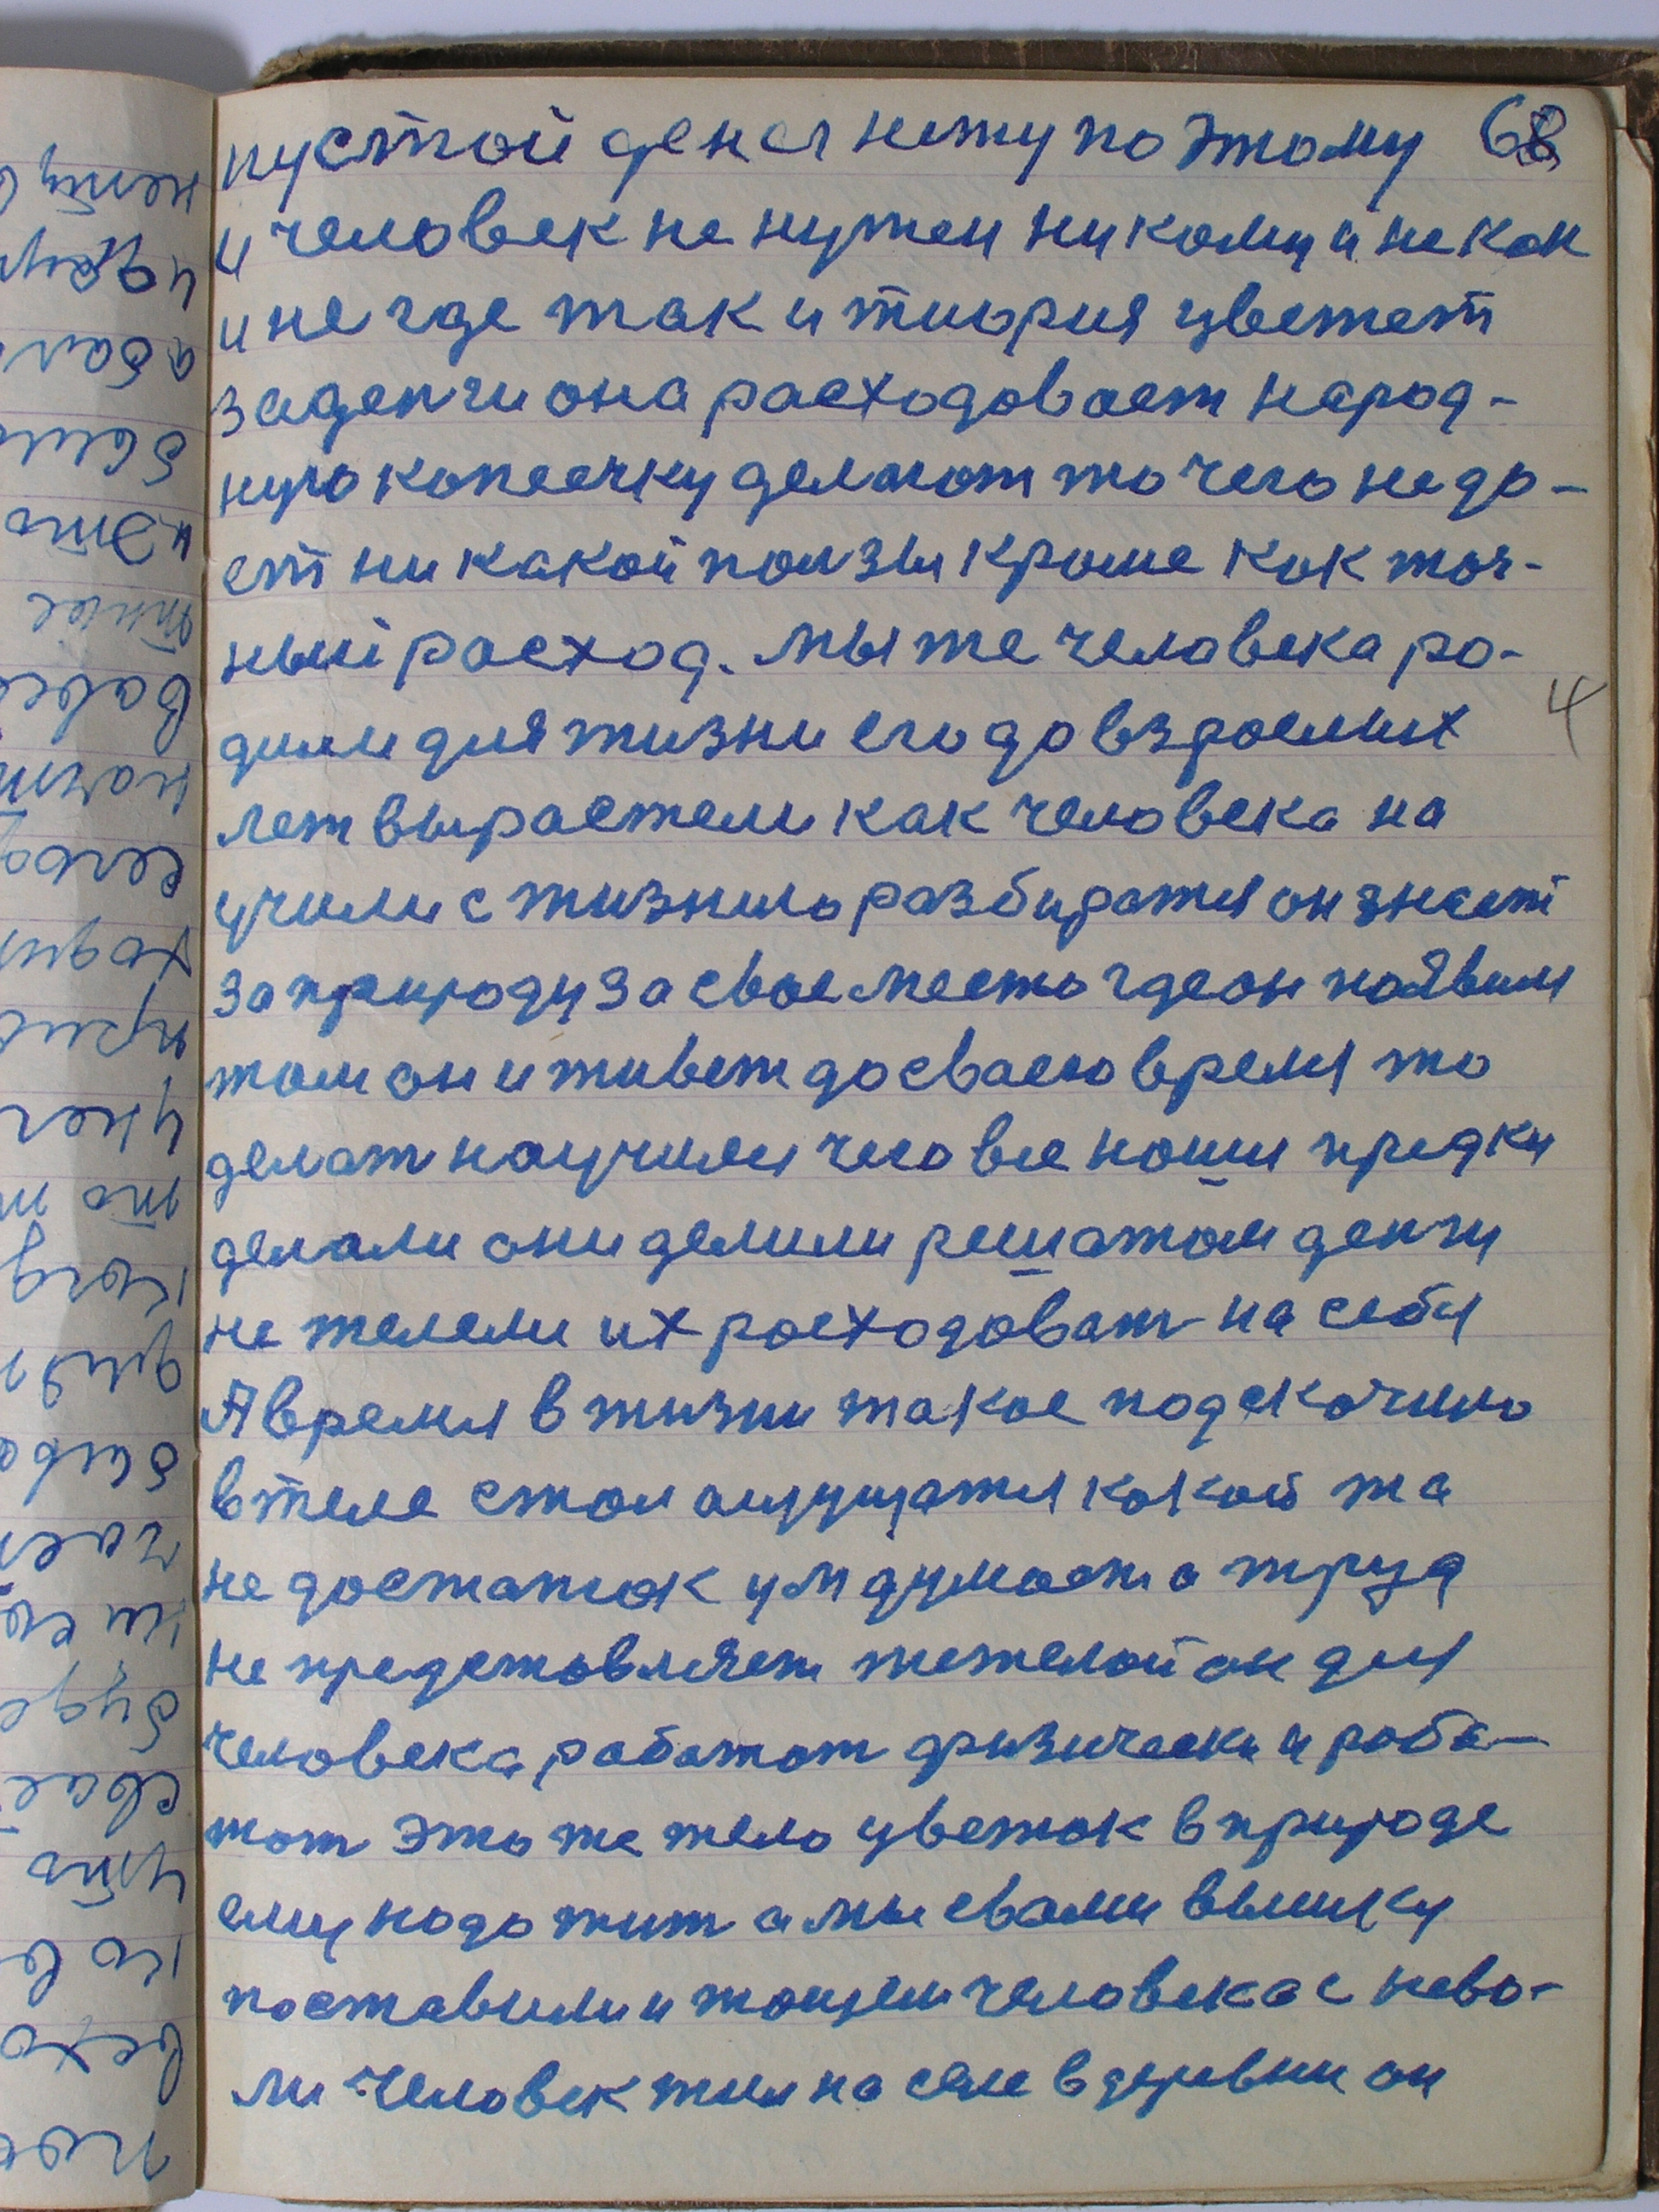 пустой денег нету поэтому 68
и человек не нужен никому и не как
и не где так и тиория цветет
за денги она расходовает народ-
ную копеечку делают то чего не до-
ст ни какой ползы кроме как точ-
ный расход. мы же человека ро-
дили для жизни его до взрослых
лет вырастели как человека на
учили с жизнию разбиратся он знает
за природу за свое место где он появил
том он и живет до своего время то
делат научился чего все наши предки
делали они делили решатом денги
не жалели их расходоват на себя
А время в жизни такое подскочило
в теле стал ощущатся какой та
не достаток ум думает а труд
не представляет тежелой он для
человека работат физически и роба-
тат это же тело цветок в природе
ему надо жит а мы свами вышку
поставили и тощем человека с нево-
ли Человек жил на селе в деревни он
4